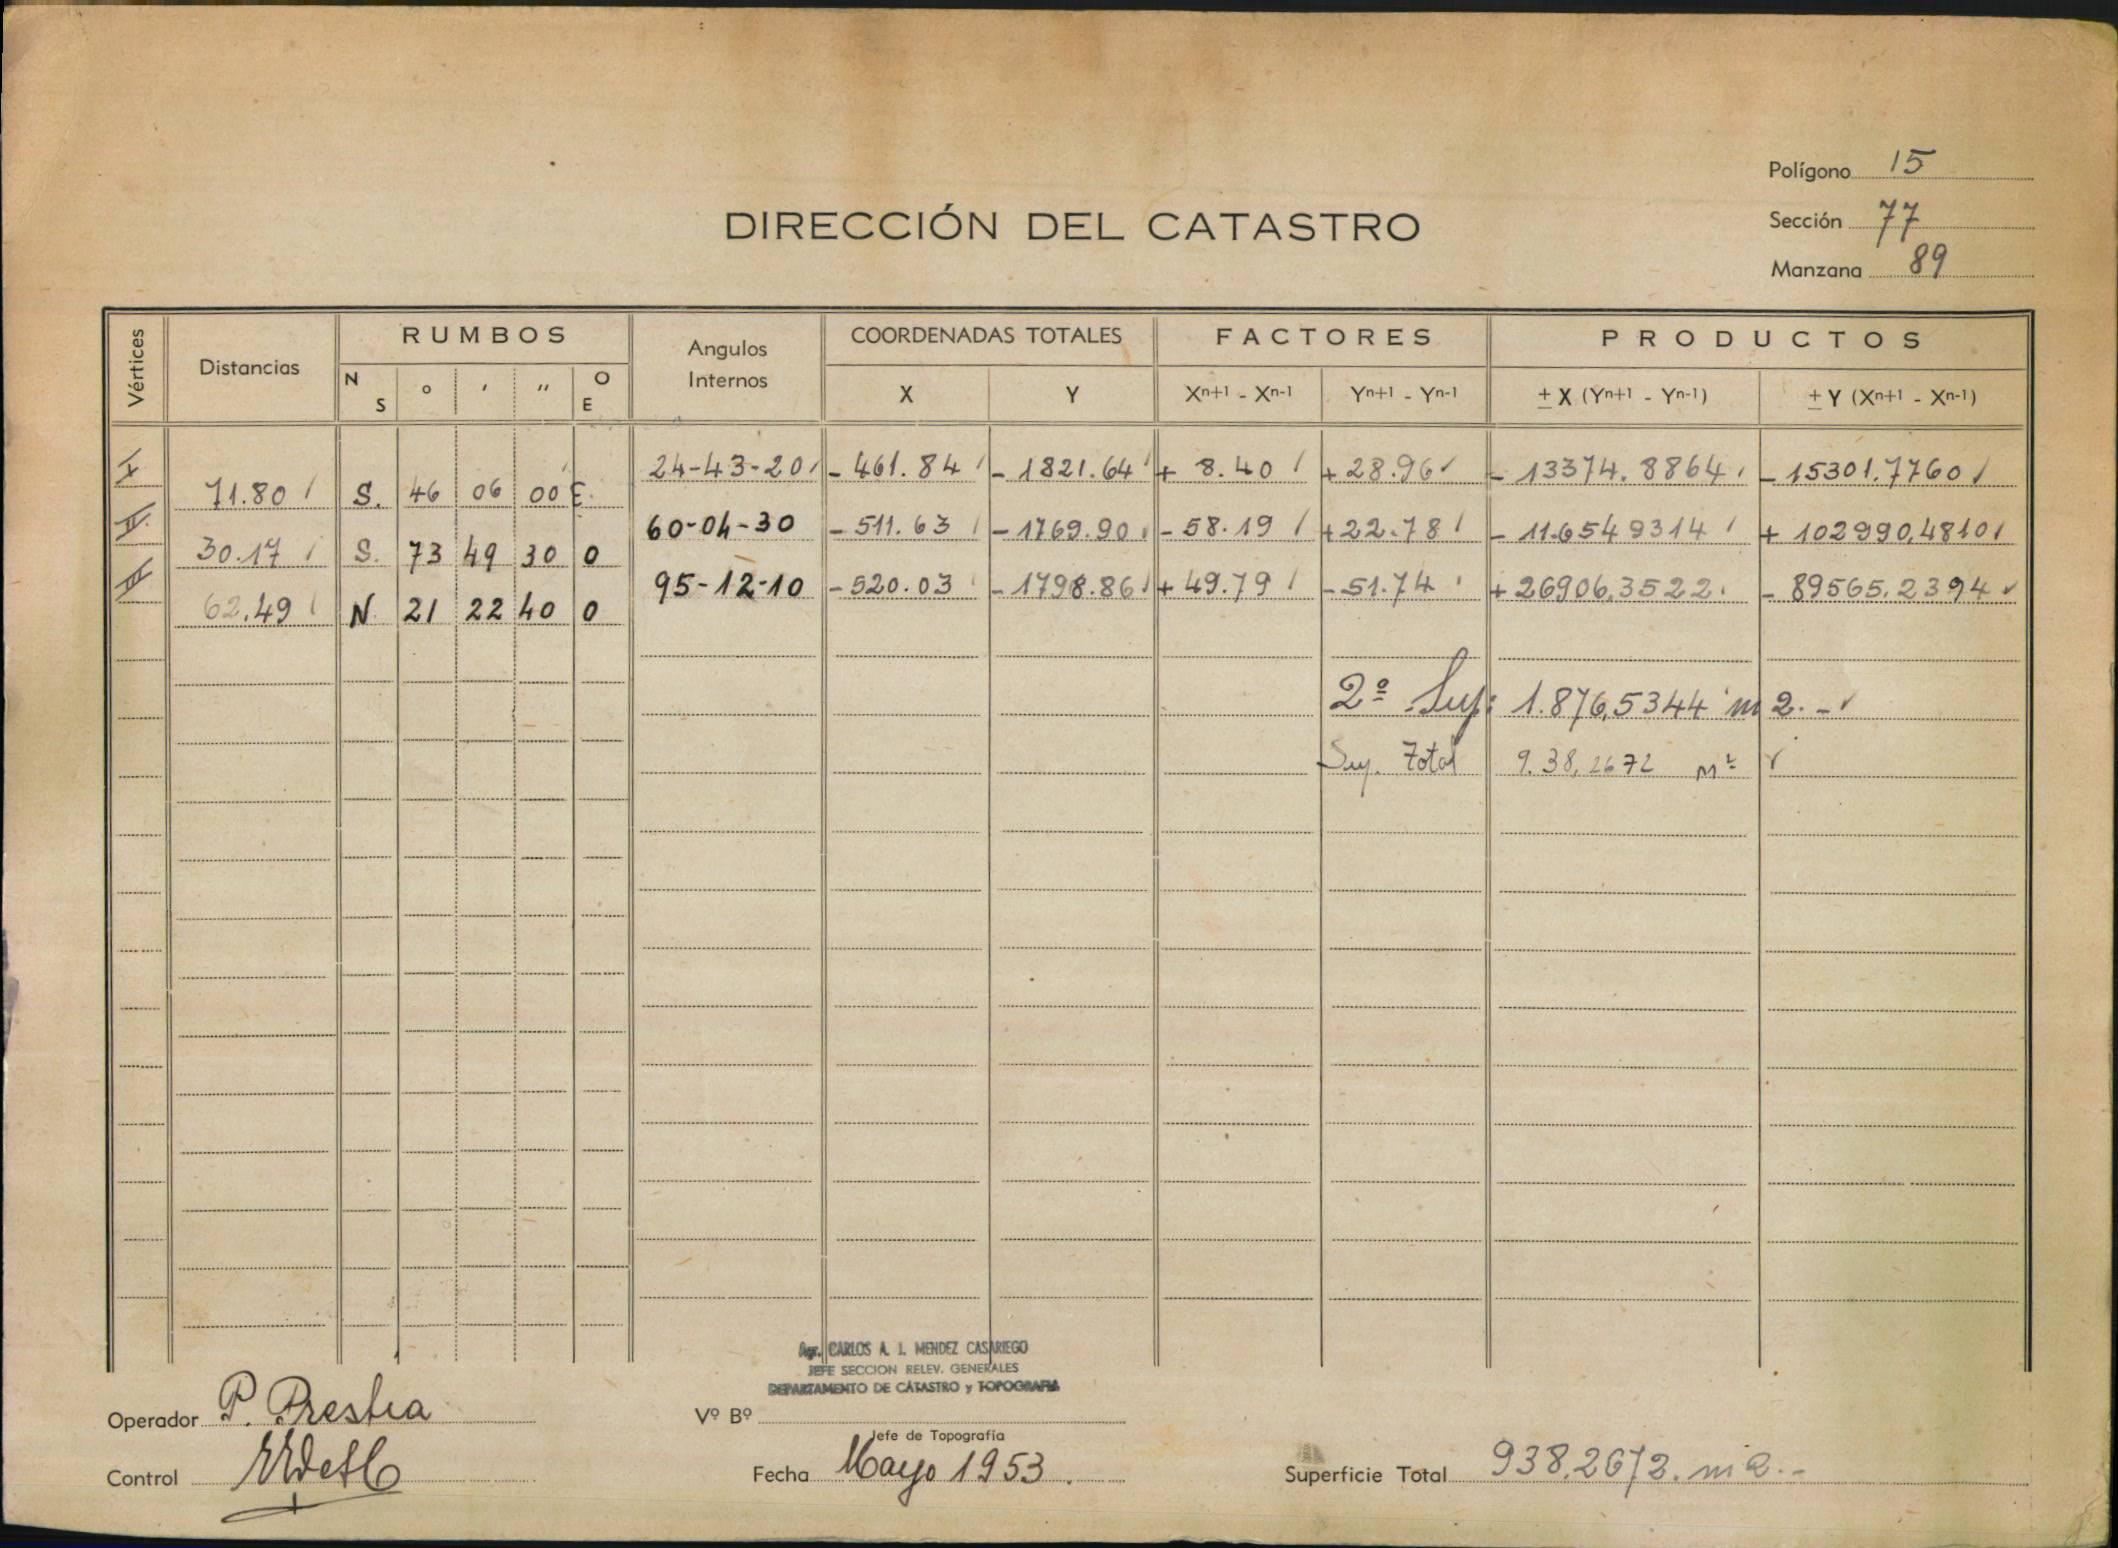 Polígono 15
DIRECCIÓN DEL CATASTRO
Sección 77
Manzana 89
Vértices Distancias RUMBOS Angulos Internos COORDENADAS TOTALES FACTORES PRODUCTOS
N S ° ' " O E X Y Xn+1 - Xn-1 Yn+1 - Yn-1 ± X (Yn+1 - Yn-1) ± Y (Xn+1 - Xn-1)
I 24-43-20 - 461.84 - 1821.64 + 8.40 + 28.96 - 13374.8864 - 15301.7760
71.80 S. 46 06 00 E.
II 60-04-30 - 511.63 - 1769.90 - 58.19 + 22.78 - 11.6549314 + 102990,4810
30.17 S. 73 49 30 O
III 95-12-10 - 520.03 - 1798.86 + 49.79 - 51.74 + 26906,3522 - 89565,2394
62,49 N 21 22 40 O
2º Sup: 1.876,5344 m2.-
Sup. Total 9.38,2672 m²
Agr. CARLOS A. I. MENDEZ CASARIEGO
JEFE SECCION RELEV. GENERALES
DEPARTAMENTO DE CATASTRO y TOPOGRAFIA
Operador P. Prestia
Vº Bº
Jefe de Topografía
Control
Fecha Mayo 1953.
Superficie Total 938,2672. m2.-